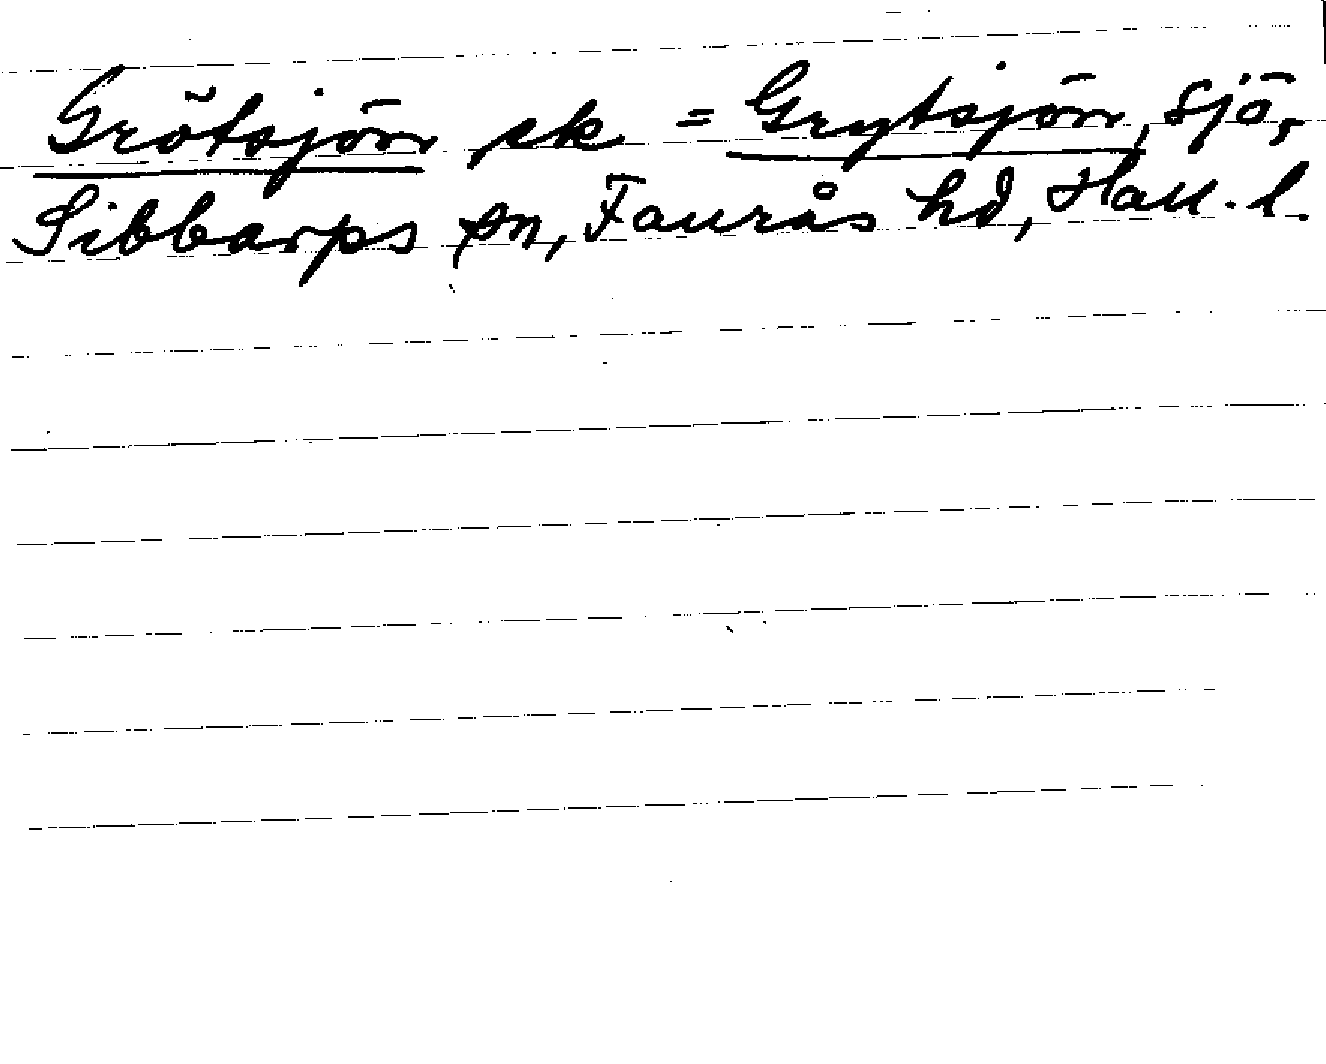 Grötsjön ek = Grytsjön, sjö,
Sibbarps sn, Faurås hd, Hall. l.